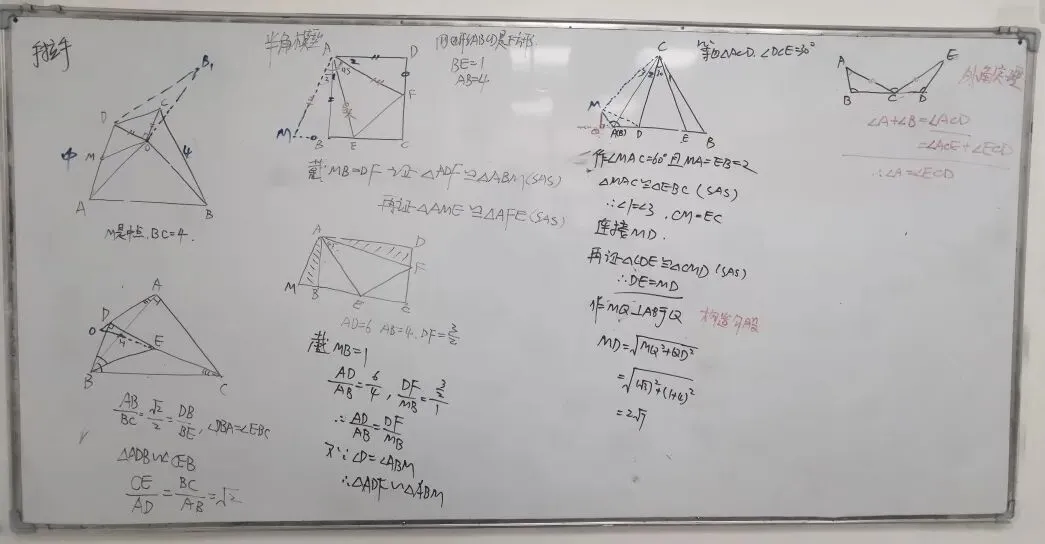 手拉手
B₁
D
C
O
4
中
M
A
B
M是中点.BC=4.
A
D
O
4
E
B
C
AB/BC=√2/2=DB/BE, ∠DBA=∠EBC
△ADB∽△CEB
CE/AD=BC/AB=√2
半角模型
四边形ABCD是正方形.
BE=1
AB=4
A
D
45
F
M
B
E
C
截MB=DF 证△ADF≌△ABM(SAS)
再证△AME≌△AFE(SAS)
A
D
F
M
B
E
C
AD=6 AB=4.DF=3/2
截MB=1
AD/AB=6/4, DF/MB=3/2/1
∴AD/AB=DF/MB
又∵∠D=∠ABM
∴△ADF∽△ABM
C
等边△ACD.∠DCE=30°
30
M
Q
A(B)
D
E
B
作∠MAC=60°且MA=EB=2
△MAC≌△EBC(SAS)
∴∠1=∠3.CM=EC
连接MD.
再证△CDE≌△CMD(SAS)
∴DE=MD
作MQ⊥AB于Q
构造勾股
MD=√MQ²+QD²
=√(√3)²+(1+4)²
=2√7
A
E
B
C
D
外角定理
∠A+∠B=∠ACD
=∠ACE+∠ECD
∴∠A=∠ECD